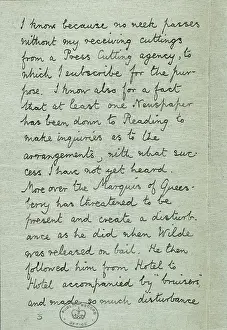 I know because no week passes
without my receiving cuttings
from a Press Cutting agency, to
which I subscribe for the pur-
pose. I know also for a fact
that at least one Newspaper
has been down to Reading to
make inquiries as to the
arrangements, with what suc
cess I have not yet heard.
More over the Marquis of Queens-
berry has threatened to be
present and create a disturb-
ance as he did when Wilde
was released on bail. He then
followed him from Hotel to
Hotel accompanied by "bruisers",
and made so much disturbance
3
OFFICE